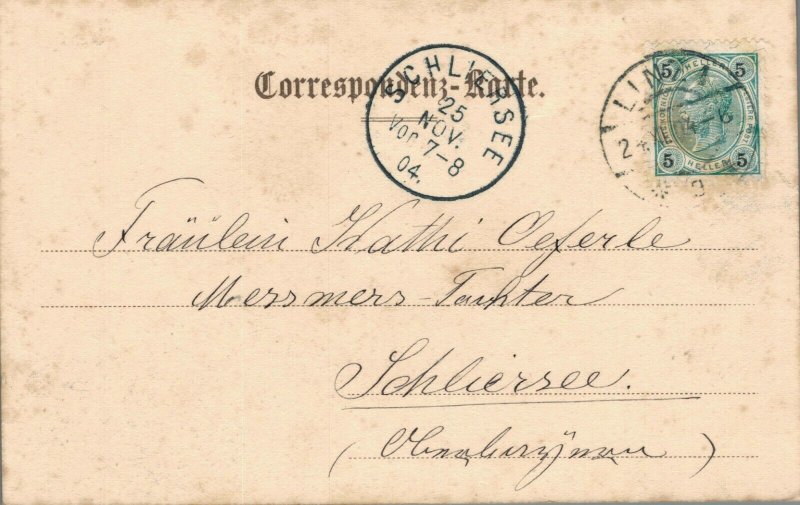 Correspondenz-Karte.
SCHLIERSEE
25
NOV.
Vor 7-8
04.
LINZ
5 5
HELLER
5 5
HELLER
Fräulein Kathi Oeferle
Messmers-Tochter
Schliersee.
(Oberbayern)